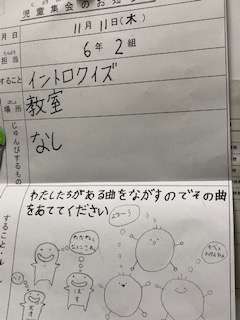 児童集会のお知らせ
月日 11月11日(木)
担当 6年2組
すること イントロクイズ
場所 教室
じゅんびするもの なし
わたしたちがある曲をながすのでその曲
をあててください
すること・ル